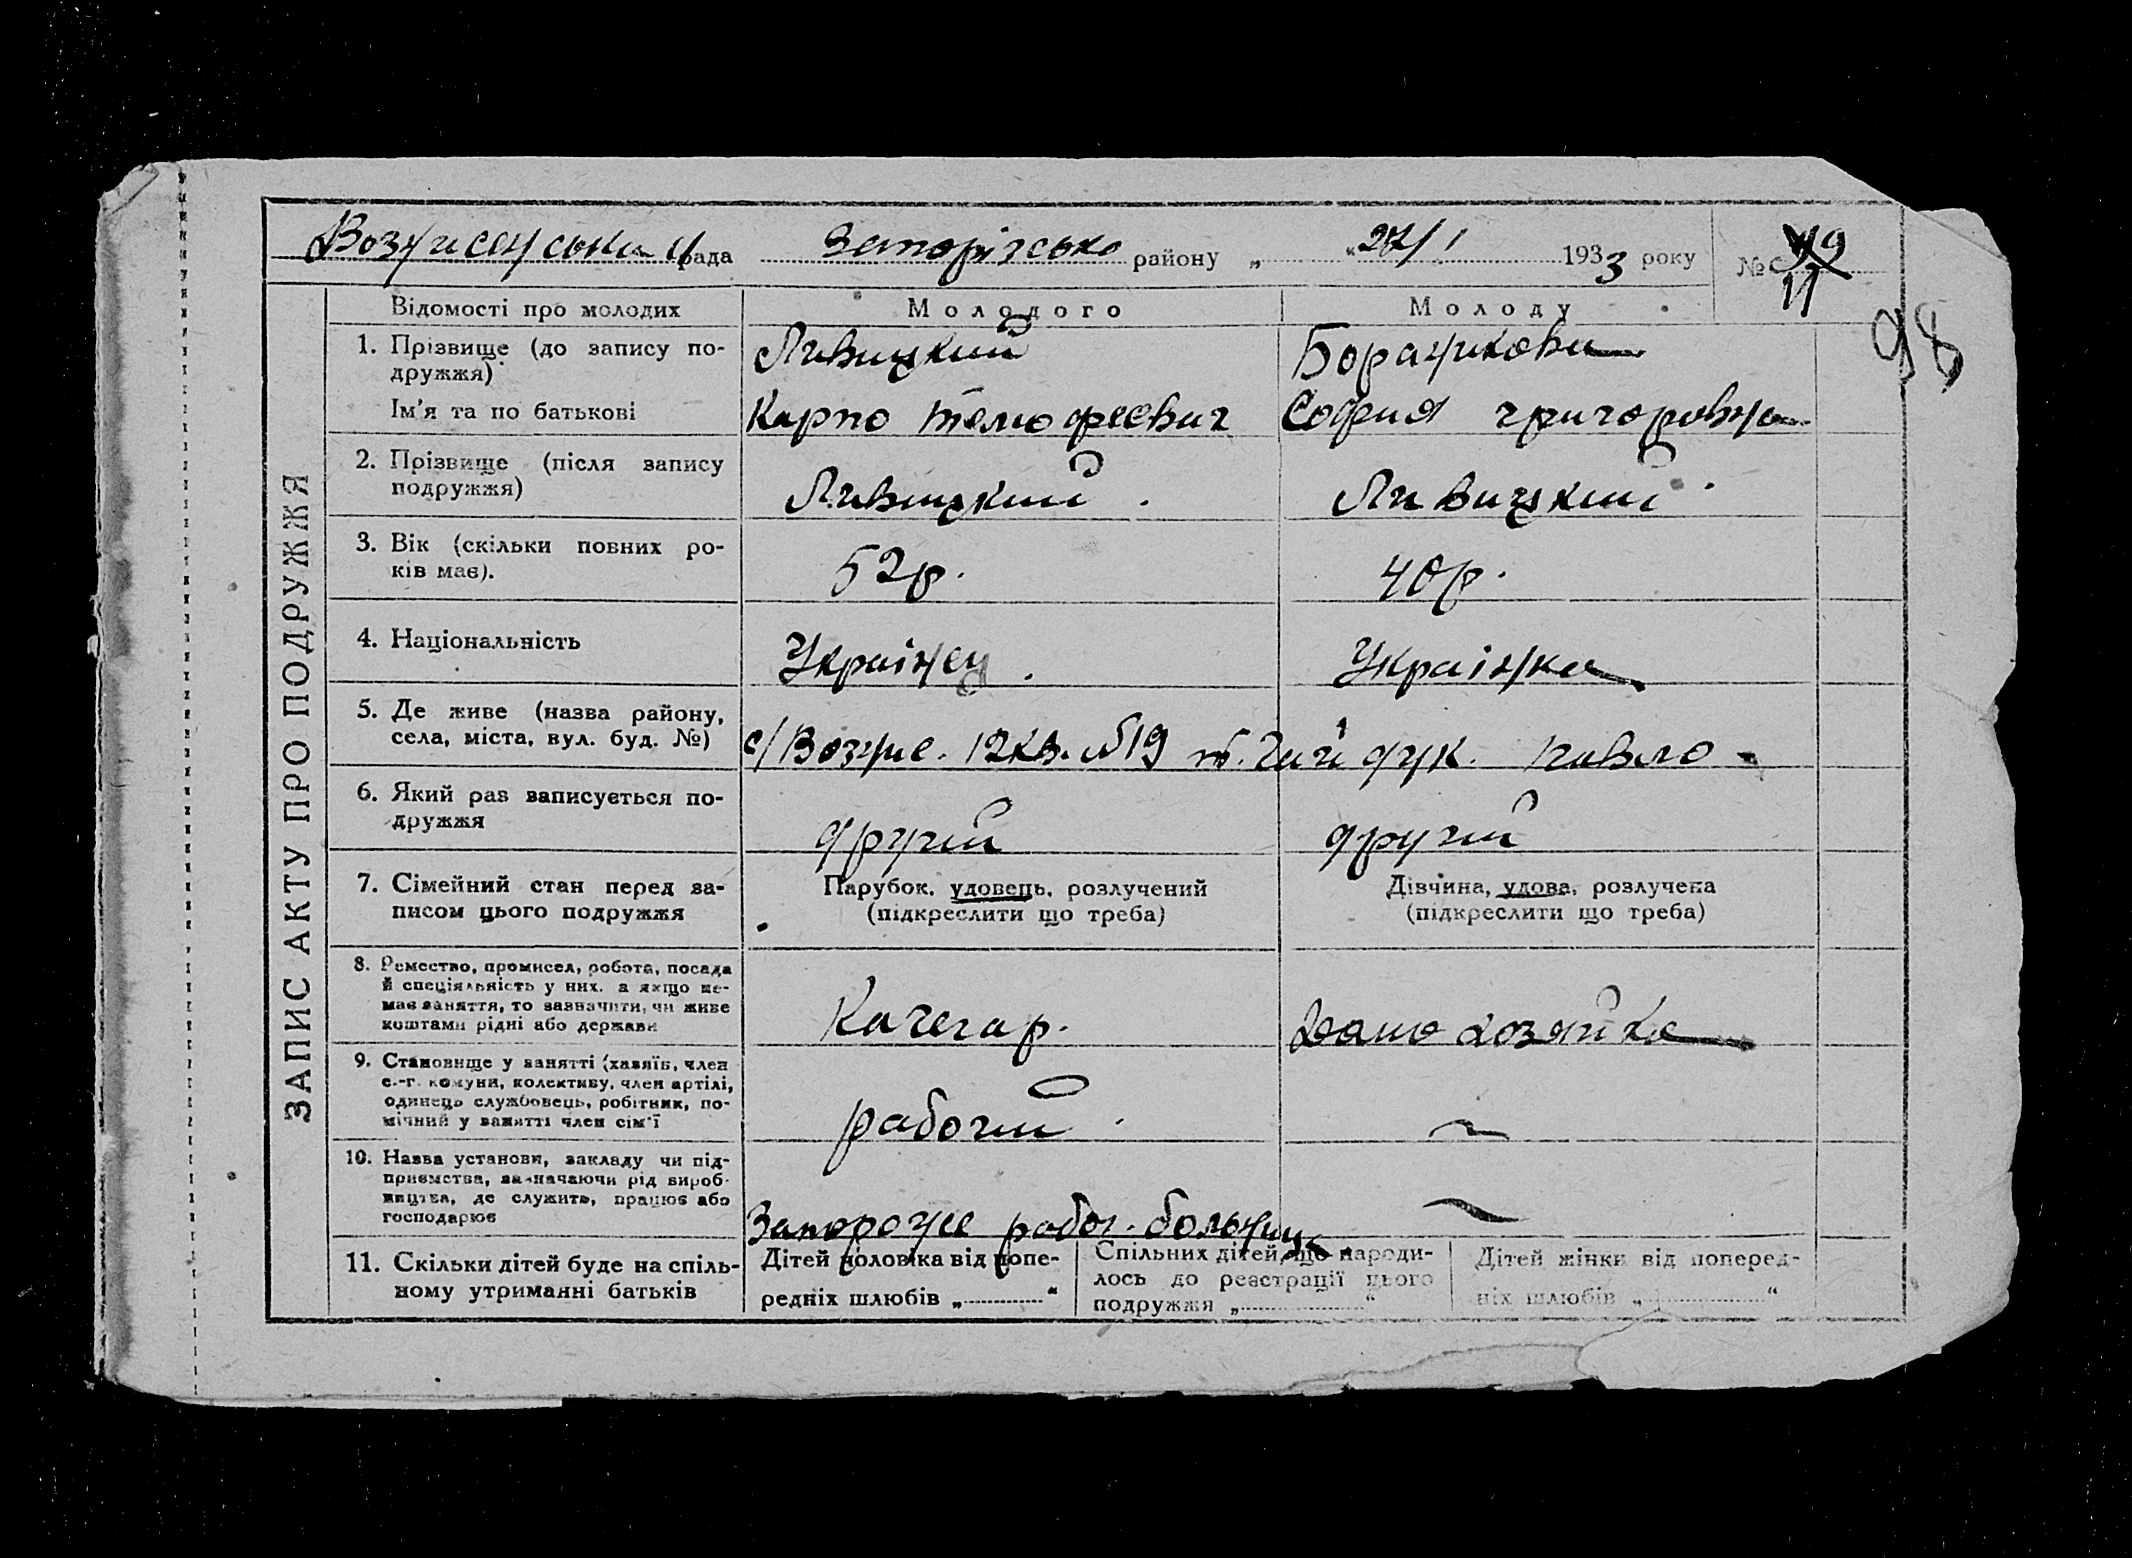 Вознисенська рада Запорізсько району „ 27/I 1933 року № 11
98
ЗАПИС АКТУ ПРО ПОДРУЖЖЯ
Відомості про молодих Молодого Молоду
1. Прізвище (до запису по-
дружжя)
Ливицкий Борачикова
Ім'я та по батькові Карпо Тимофеевич София Григоровна
2. Прізвище (після запису
подружжя)
Ливицкий Ливицкий
3. Вік (скільки повних ро-
ків має).
52р. 40р.
4. Національність Українец Українка
5. Де живе (назва району,
села, міста, вул. буд. №)
с/Вознис. 12кв. №19 Павло
6. Який раз записується по-
дружжя
другий другий
7. Сімейний стан перед за-
писом цього подружжя
Парубок, удовець, розлучений
(підкреслити що треба)
Дівчина, удова, розлучена
(підкреслити що треба)
8. Ремество, промисел, робота, посада
й спеціяльність у них. а якщо не-
має заняття, то зазначити, чи живе
коштами рідні або держави
Качегар. Домохозяйка
9. Становище у занятті (хазяїн, член
с.-г. комуни, колективу, член артілі,
одинець службовець, робітник, по-
мічний у занятті член сім'ї
рабочий
10. Назва установи, закладу чи під-
приємства, зазначаючи рід вироб-
ництва, де служить, працює або
господарює
Запорожье рабоч. больница
11. Скільки дітей буде на спіль-
ному утриманні батьків
Дітей чоловіка від попе-
редніх шлюбів „ “
Спільних дітей, що народи-
лось до реєстрації цього
подружжя „ “
Дітей жінки від поперед-
ніх шлюбів „ “